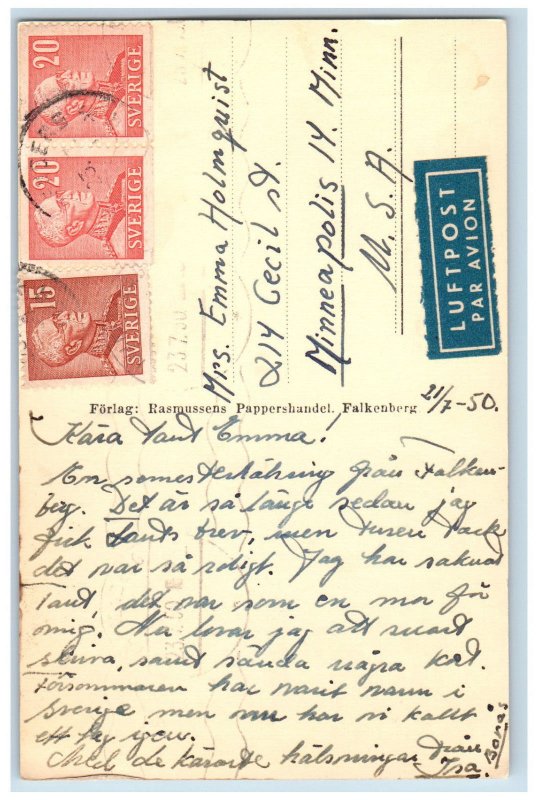 20
SVERIGE
20
SVERIGE
15
SVERIGE
Mrs. Emma Holmquist
214 Cecil St.
Minneapolis 14. Minn.
U. S. A.
LUFTPOST
PAR AVION
Förlag: Rasmussens Pappershandel. Falkenberg
21/7-50.
Kära tant Emma!
En somerhälsning från Falken-
berg. Det är så länge sedan jag
fick tants brev, men tusen tack
det var så roligt. Jag har saknat
Tant, det var som en mor för
mig. Nu lovar jag att snart
skriva, samt sända några kort.
Försommaren har varit varm i
Sverige men nu har vi kallt
ett tag igen.
Med de käraste hälsningar från
Isa. Borås